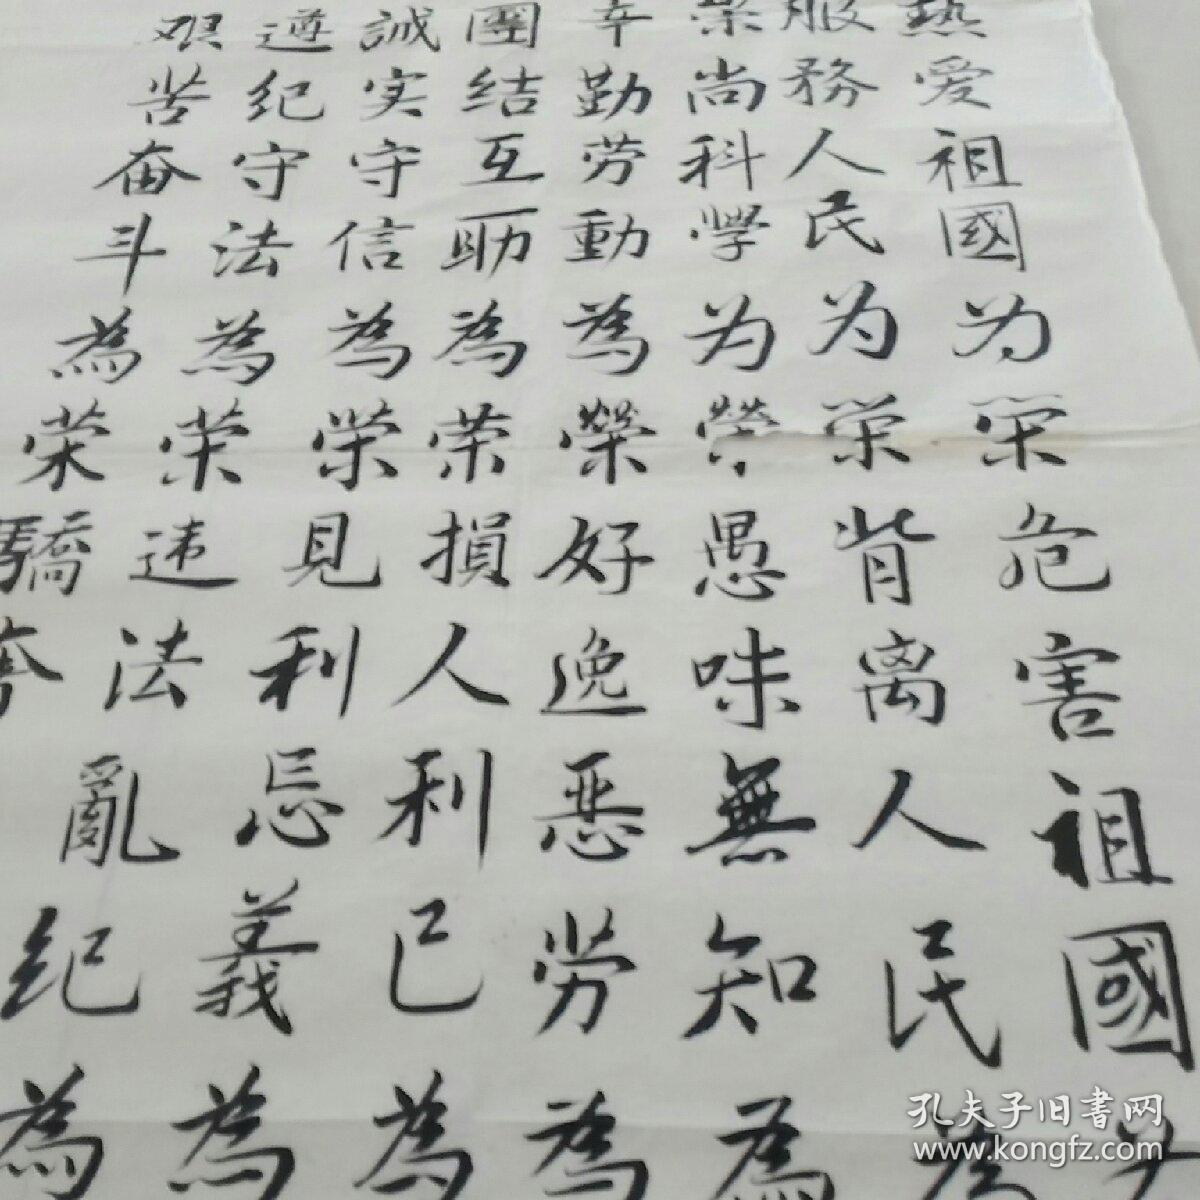 熱爱祖國为荣危害祖國为
服務人民为荣背离人民為
崇尚科学为荣愚昧無知為
辛勤劳動為榮好逸恶劳為
團结互助為荣損人利己為
誠实守信為榮見利忘義為
遵纪守法為荣违法亂纪為
艰苦奋斗為荣驕奢
孔夫子旧書网
www.kongfz.com